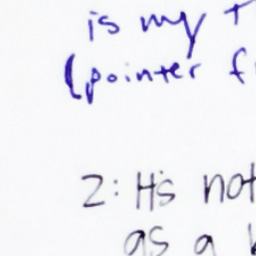 is my
(pointer
2: It's not
as a